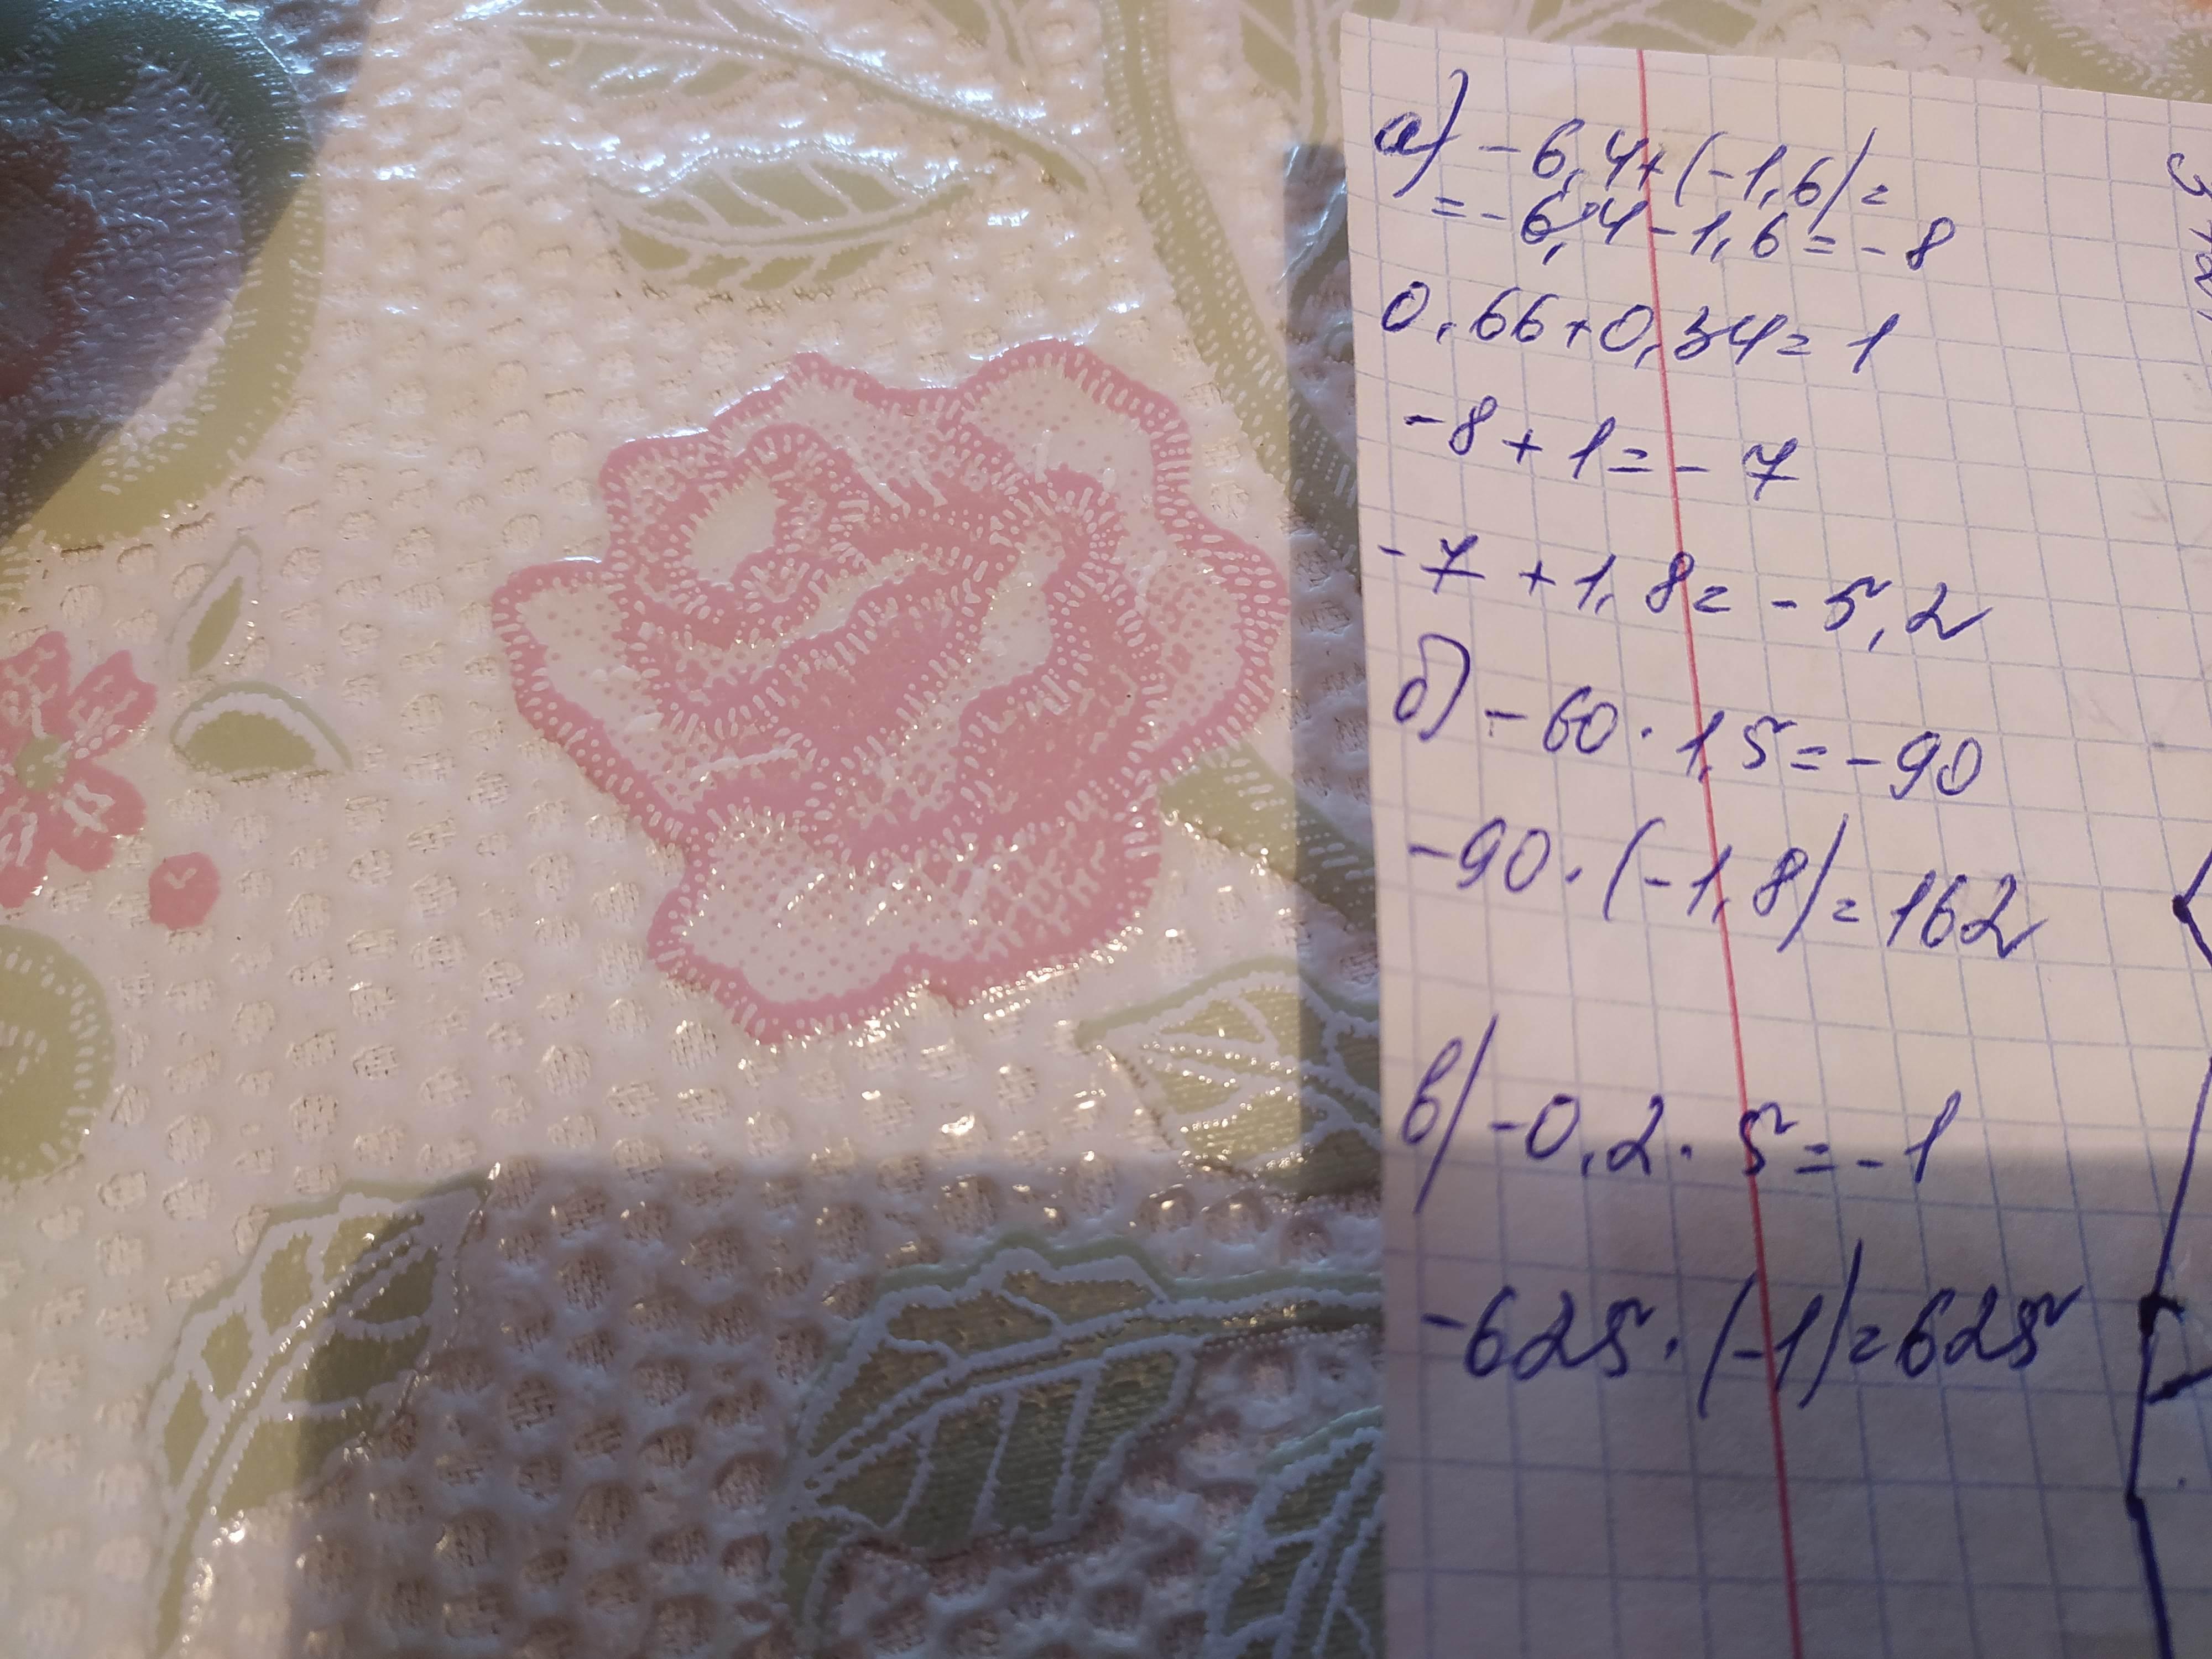 а) -6,4+(-1,6)=
=-6,4-1,6=-8
0,66+0,34=1
-8+1=-7
-7+1,8=-5,2
б) -60·1,5=-90
-90·(-1,8)=162
в) -0,2·5=-1
-625·(-1)=625